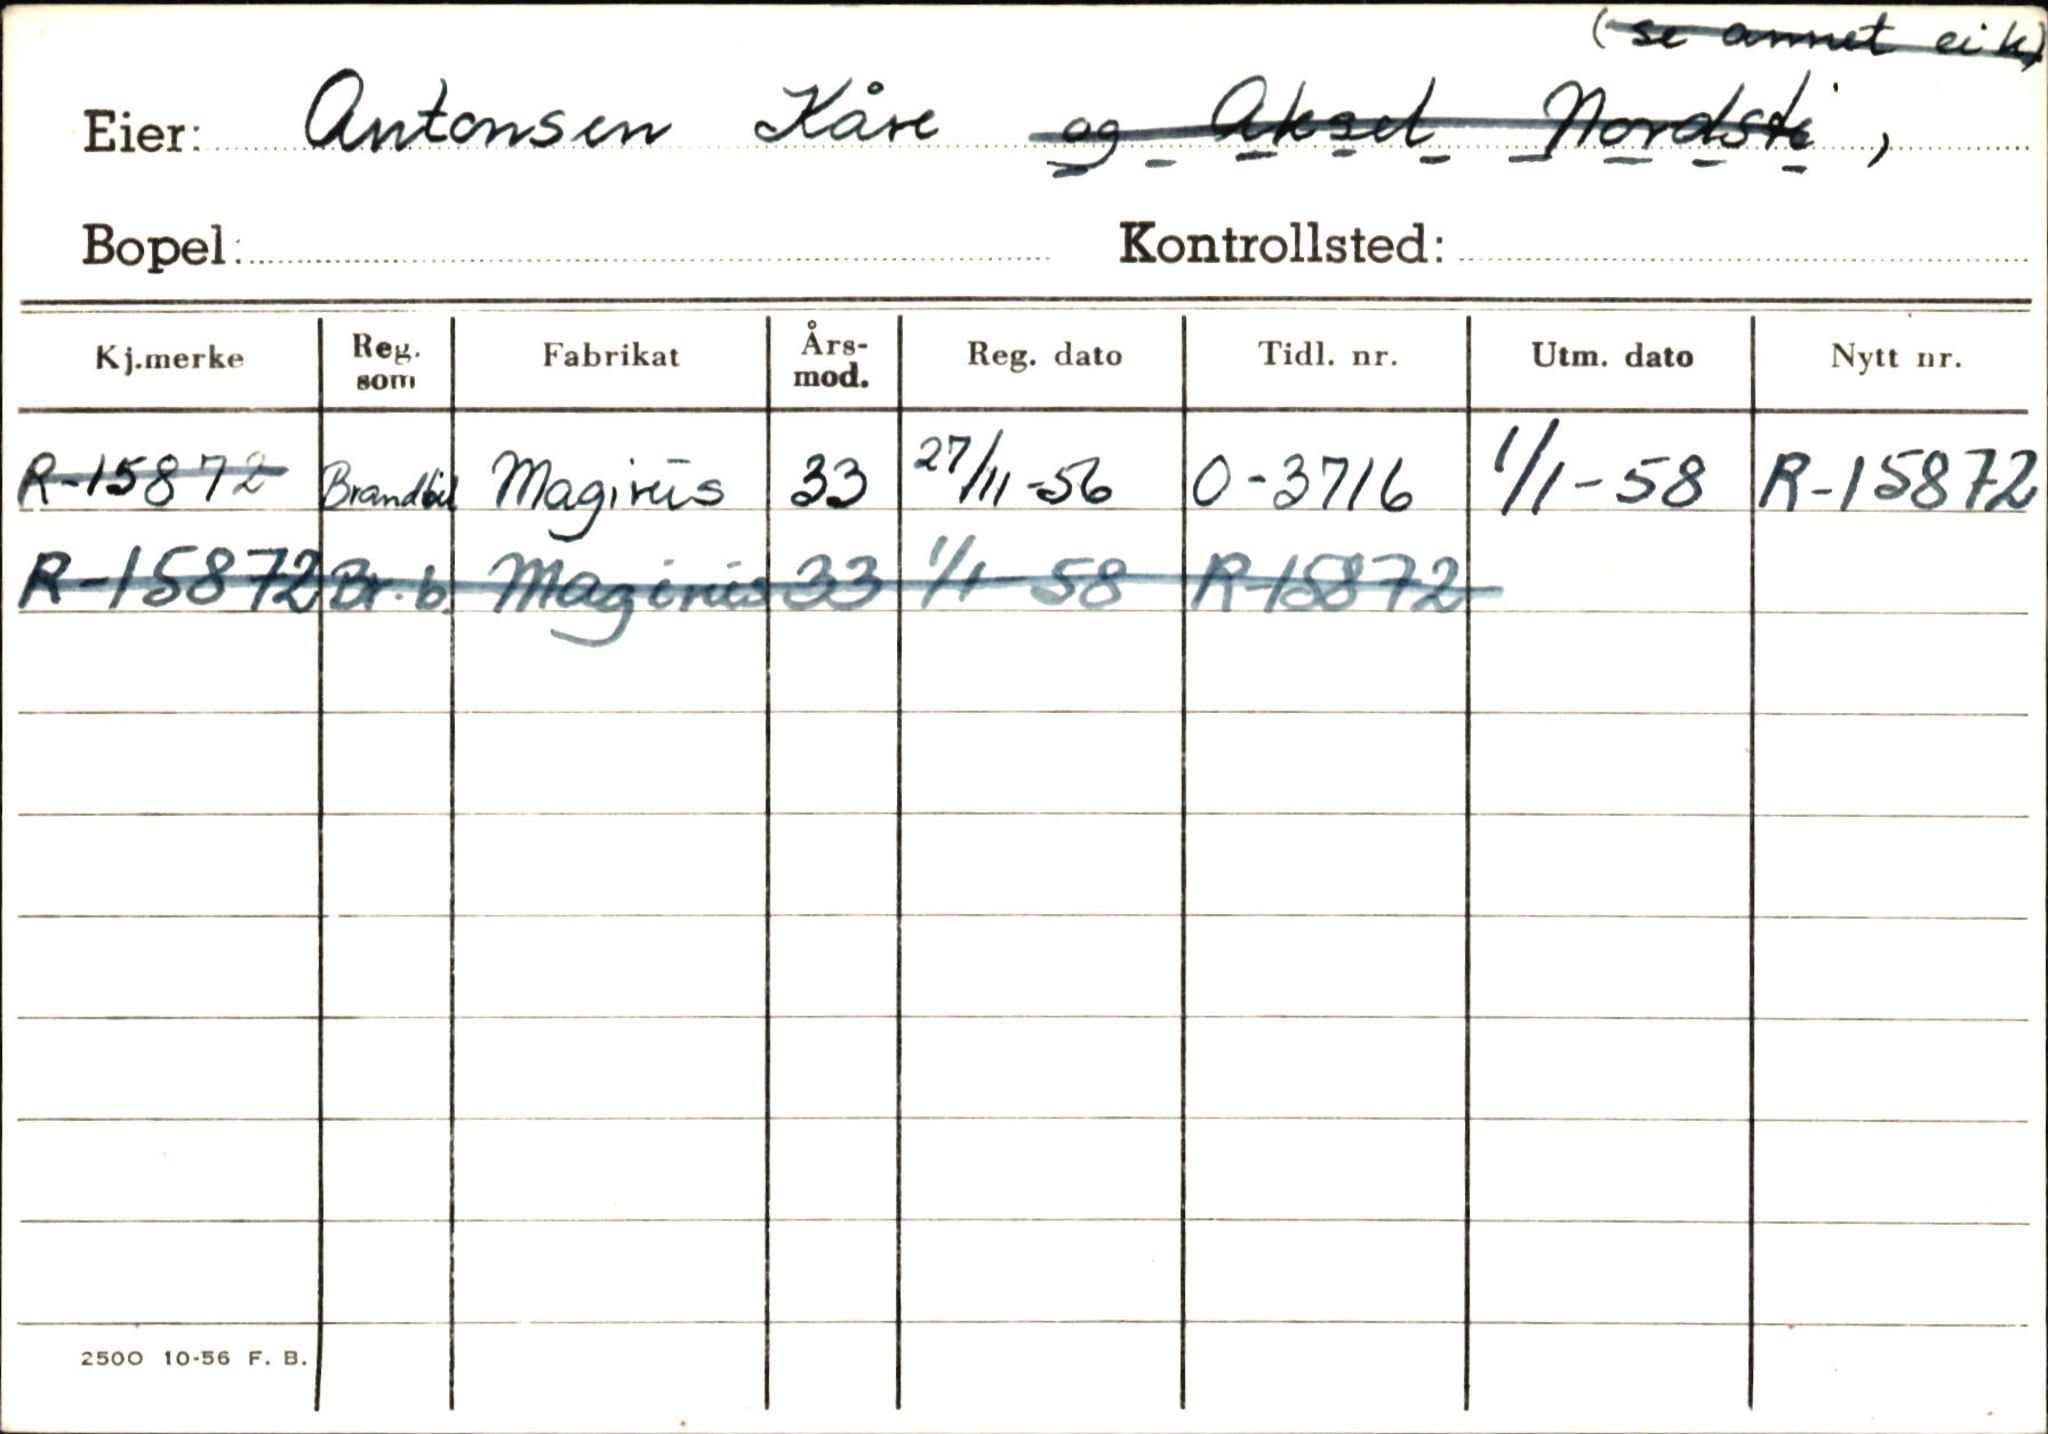 (se annet eik)
Eier: Antonsen Kåre og Aksel Nordsti,
Bopel: Kontrollsted:
Kj.merke Reg. som Fabrikat Års-mod. Reg. dato Tidl. nr. Utm. dato Nytt nr.
R-15872 Brandbil Magirus 33 27/11-56 O-3716 1/1-58 R-15872
R-15872 Br.b. Magirus 33 1/1-58 R-15872
2500 10-56 F. B.